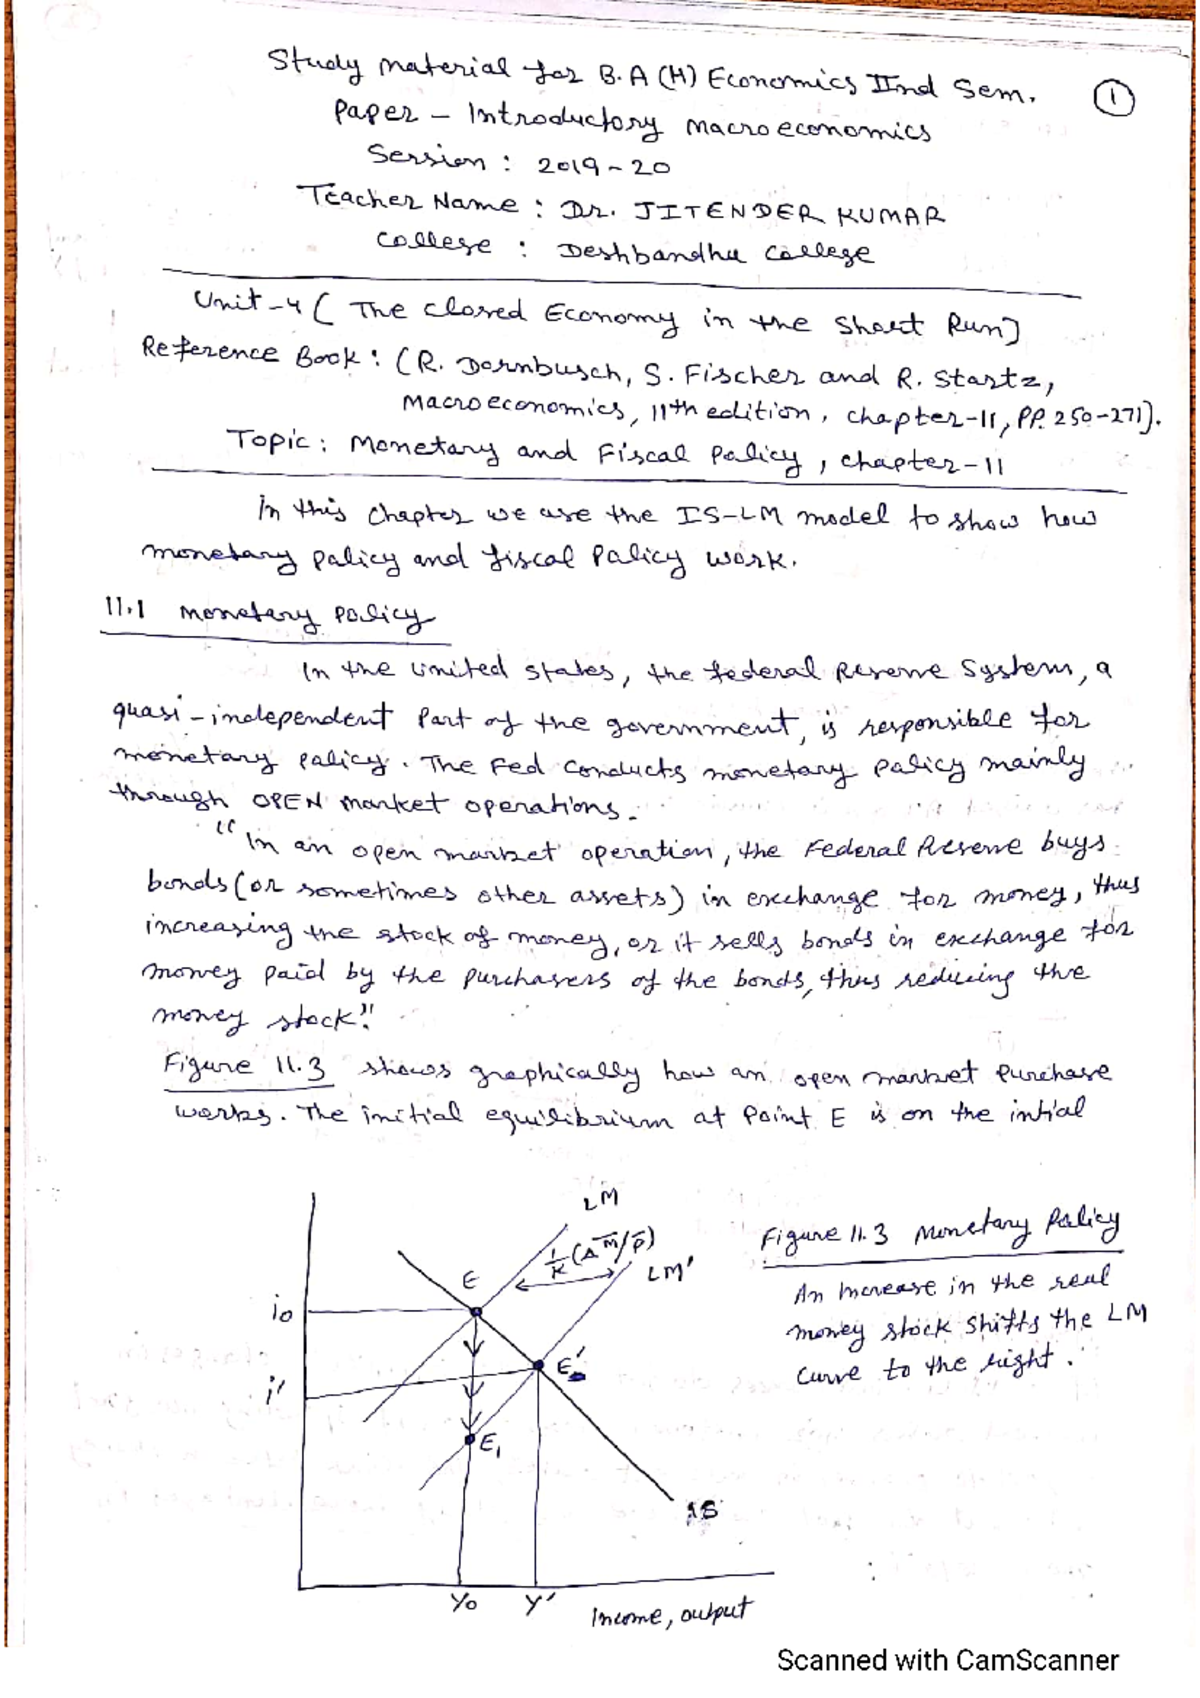 Study material for B.A (H) Economics IInd Sem.
①
Paper – Introductory Macroeconomics
Session : 2019-20
Teacher Name : Dr. JITENDER KUMAR
College : Deshbandhu College
Unit-4 ( The Closed Economy in the Short Run)
Reference Book : (R. Dornbusch, S. Fischer and R. Startz,
Macroeconomics, 11th edition, chapter-11, PP. 250-271).
Topic : Monetary and Fiscal Policy, chapter-11
In this chapter we use the IS-LM model to show how
monetary policy and fiscal policy work.
11.1 Monetary Policy
In the United States, the Federal Reserve System, a
quasi-independent Part of the government, is responsible for
monetary policy. The Fed conducts monetary policy mainly
through OPEN market operations.
"In an open market operation, the Federal Reserve buys
bonds (or sometimes other assets) in exchange for money, thus
increasing the stock of money, or it sells bonds in exchange for
money paid by the purchasers of the bonds, thus reducing the
money stock."
Figure 11.3 shows graphically how an open market Purchase
works. The initial equilibrium at Point E is on the intial
LM
1/k (Δ M̄/P̄)
LM'
E
i₀
E'
i'
E₁
IS
Y₀ Y' Income, output
Figure 11.3 Monetary Policy
An Increase in the real
money stock shifts the LM
curve to the right.
Scanned with CamScanner